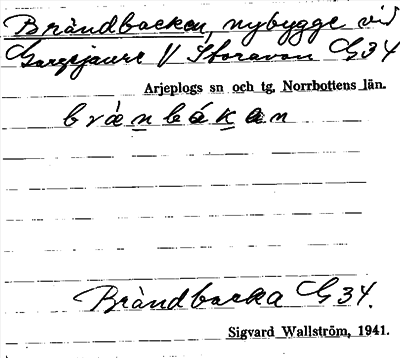 Brändbacken, nybygge vid
Gargejaure V Storavan G34
Arjeplogs sn och tg, Norrbottens län.
brá̱nbákan
Brändbacka G34.
Sigvard Wallström, 1941.